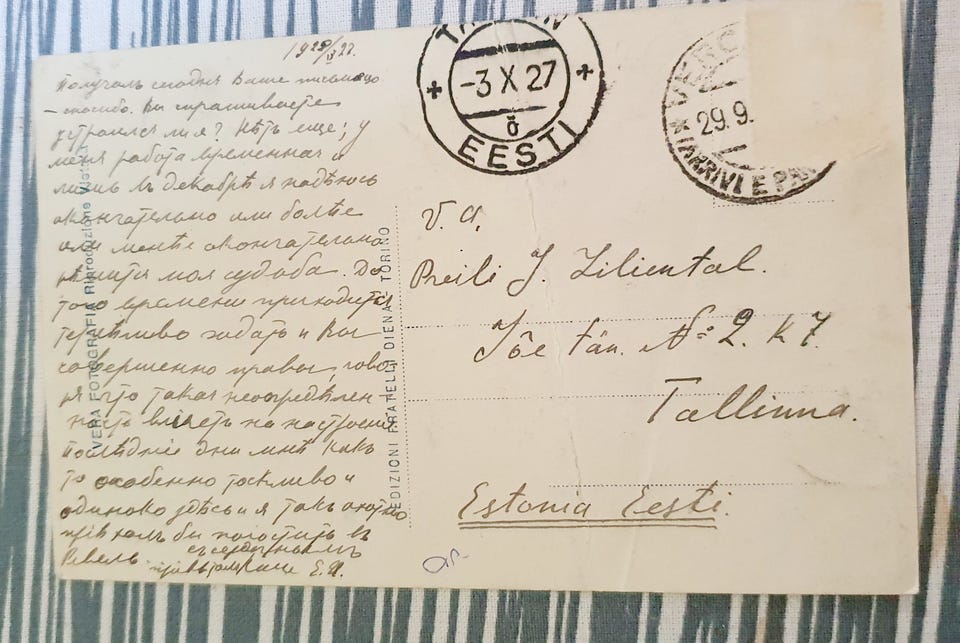 1927
Получилъ сегодня Ваше письмецо
– спасибо. Вы спрашиваете
устроился ли я? Нѣтъ еще; у
меня работа временная и
лишь въ декабрѣ я надѣюсь
окончательно или болѣе
или менѣе окончательно
рѣшится моя судьба. До
того времени приходится
терпѣливо ждать и Вы
совершенно правы говo
ря что такая неопредѣлен-
ность вліяетъ на настроен
Послѣдніе дни мнѣ какъ
то особенно тоскливо и
одиноко здѣсь и я такъ охотно
пріѣхалъ бы погостить въ
Ревель.
съ сердечнымъ
привѣтомъ Е.
VERA FOTOGRAFIA Riproduzione
EDIZIONI FRATELLI DIENA - TORINO
-3 X 27
ð
EESTI
29.9.
ARRIVI E PA
V. A.
Preili J. Liliental.
Jõe tän. № 2. k 7.
Tallinna.
Estonia Eesti.